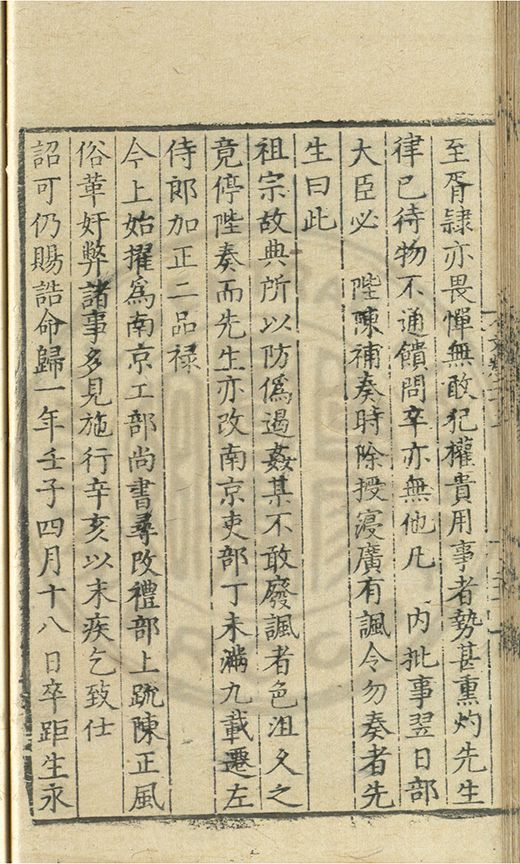 至胥隸亦畏憚無敢犯權貴用事者勢甚熏灼先生
律已待物不通饋問卒亦無他凡 內批事翌日部
大臣必 陛陳補奏時除授寖廣有諷令勿奏者先
生曰此
祖宗故典所以防僞遏姦某不敢廢諷者色沮久之
竟停陛奏而先生亦改南京吏部丁未滿九載遷左
侍郎加正二品祿
今上始擢爲南京工部尚書尋改禮部上疏陳正風
俗革奸弊諸事多見施行辛亥以末疾乞致仕
詔可仍賜誥命歸一年壬子四月十八日卒距生永